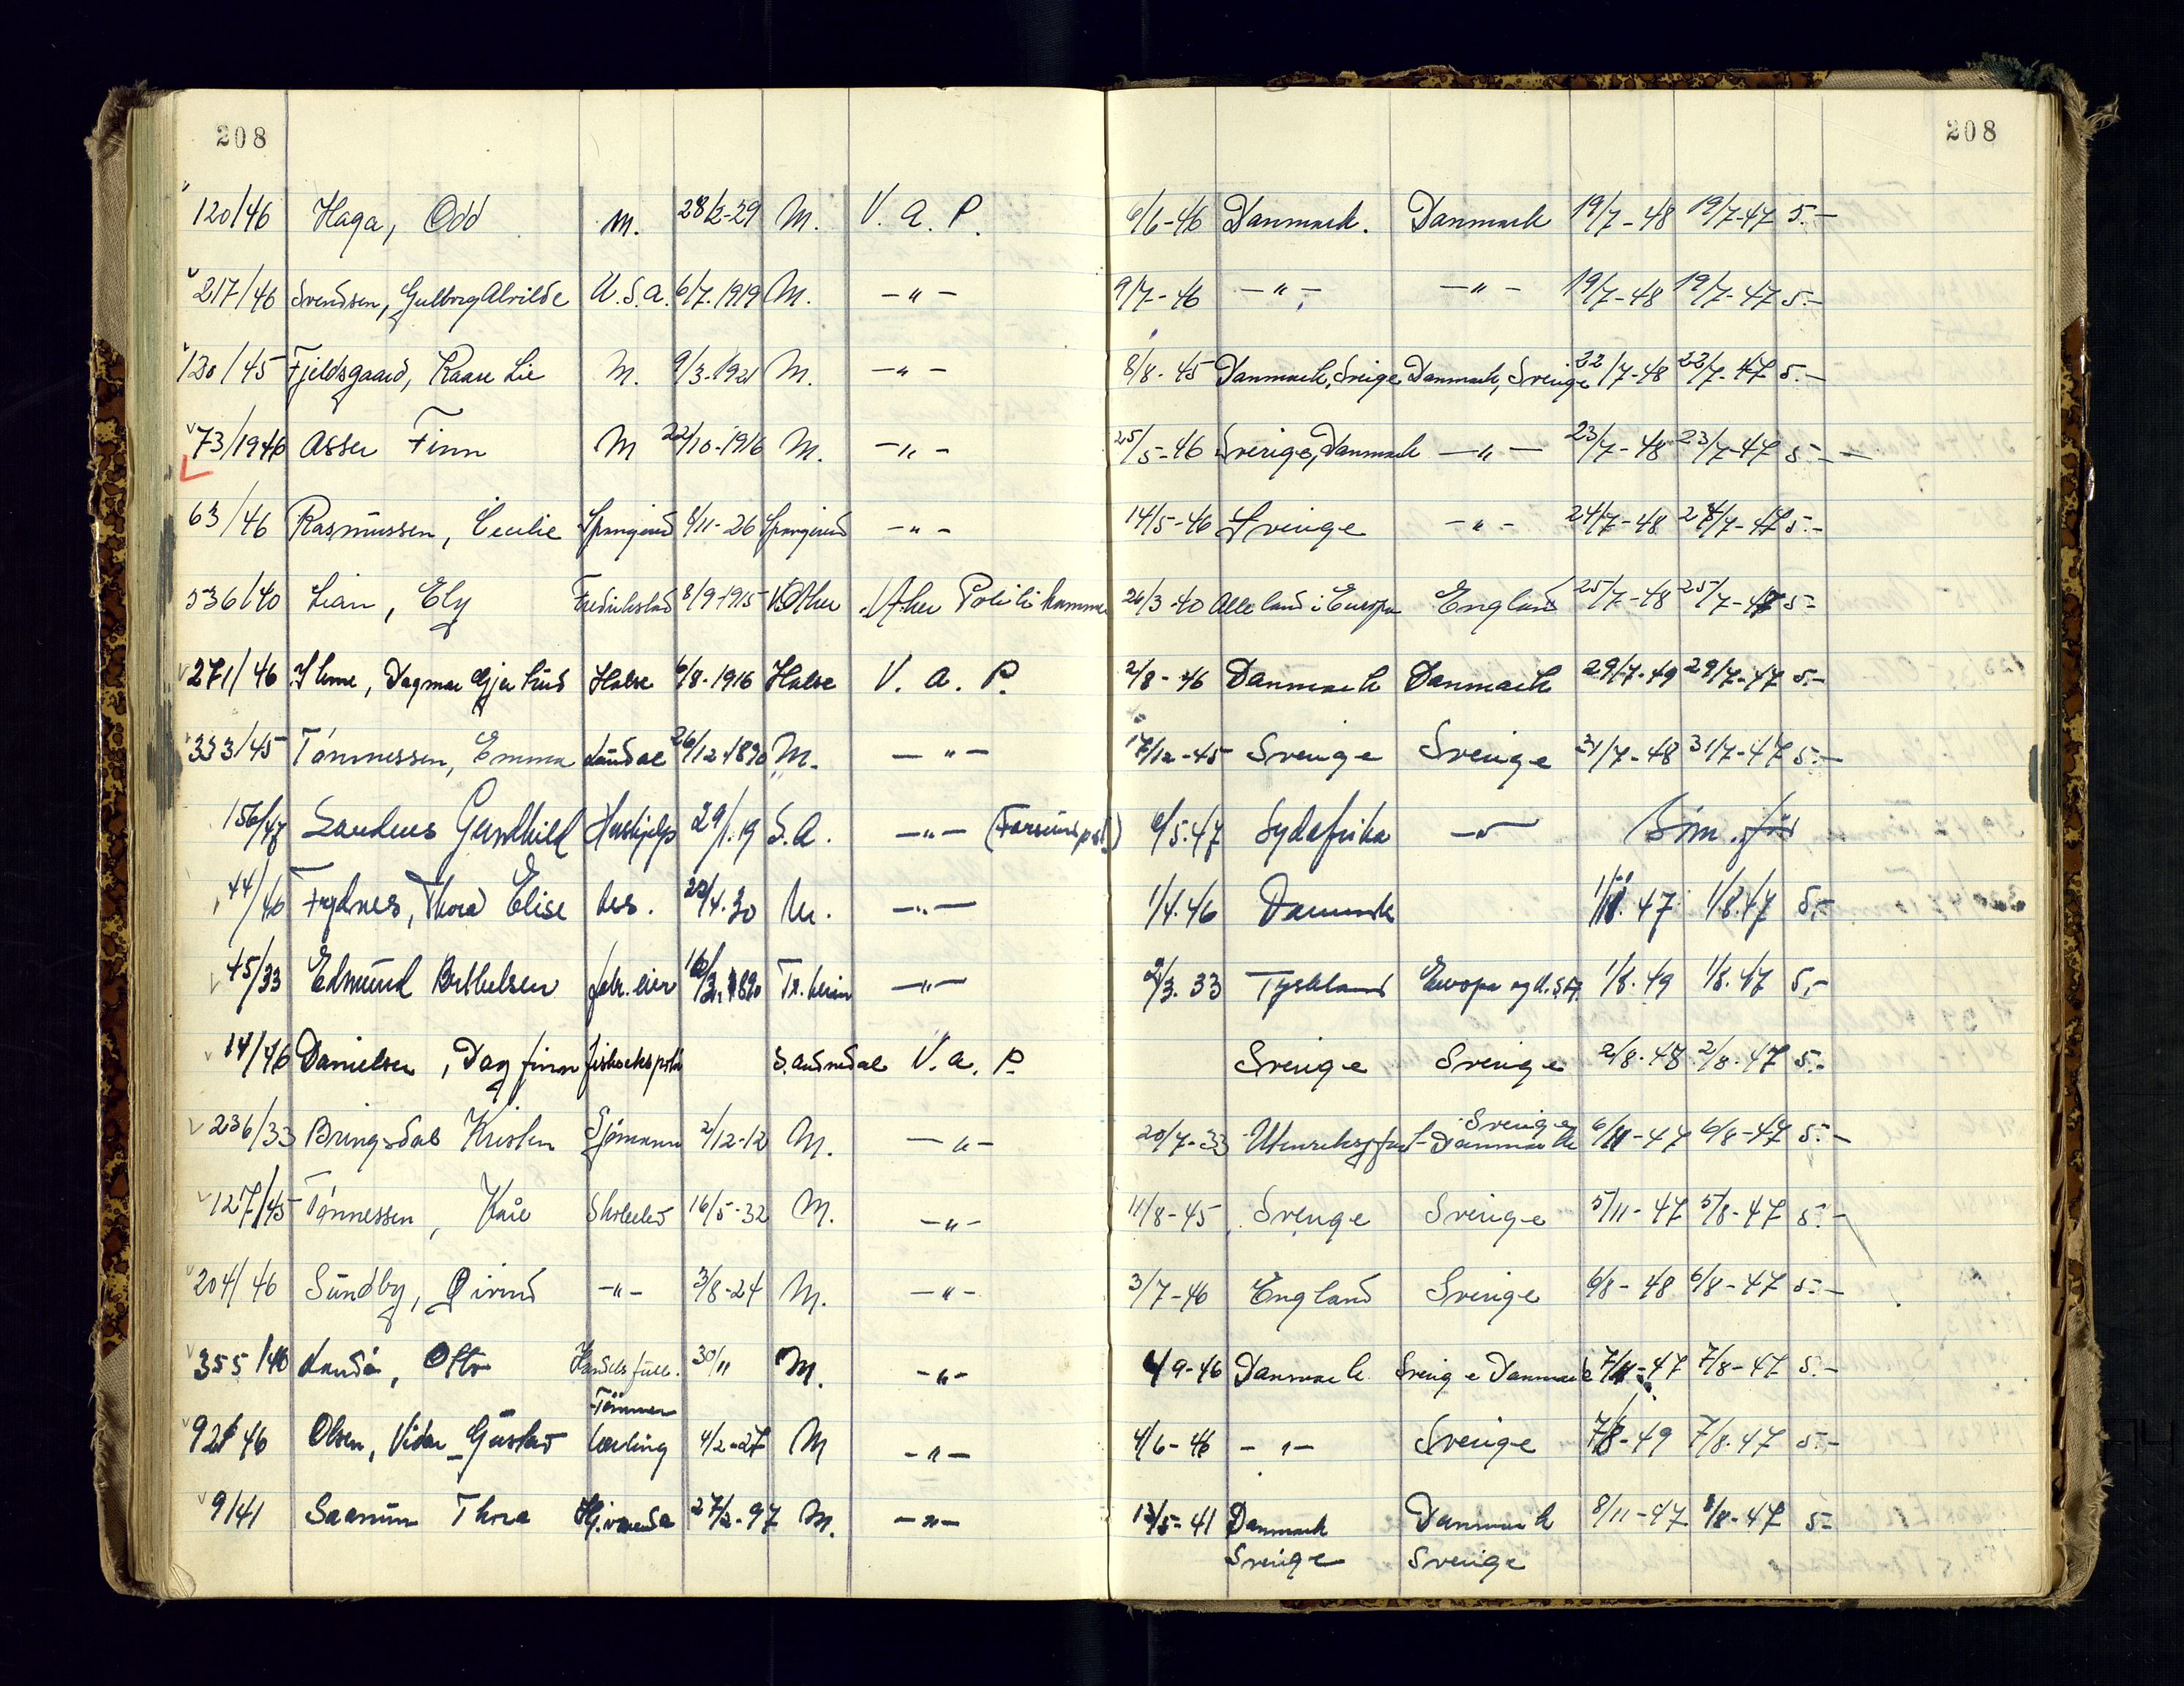 208 208
120/46 Haga, Odd M. 28/2-29 M. V. A. P. 6/6-46 Danmark. Danmark 19/7-48 19/7-47 5.-
217/46 Svendsen, Gulborg Alvilde U.S.A. 6/7.1919 M. -"- 9/7-46 -"- -"- 19/7-48 19/7-47 5.-
130/45 Fjeldsgaard, Kaare Lie M. 9/3-1921 M. -"- 8/8-45 Danmark, Sverige Danmark, Sverige 22/7-48 22/7-47 5.-
73/1946 Asser Finn M 22/10-1916 M. -"- 25/5-46 Sverige, Danmark -"- 23/7-48 23/7-47 5.-
63/46 Rasmussen, Cecilie Spangereid 8/11-26 Spangereid -"- 14/5-46 Sverige -"- 24/7-48 24/7-47 5.-
536/40 Lian, Ely Fredrikstad 8/9-1915 V. Aker Aker Politikammer 26/3-40 Alle land i Europa England 25/7-48 25/7-47 5-
271/46 Ihme, Dagmar Gjertrud Halse 6/8-1916 Halse V. A. P. 2/8-46 Danmark Danmark 29/7-49 29/7-47 5.-
333/45 Tønnessen, Emma Laudal 26/12-1890 M. -"- 17/12-45 Sverige Sverige 31/7-48 31/7-47 5.-
156/47 Gunhild Hushjelp 29/1.19 S.A. -"- 6/5.47 Sydafrika -"-
44/46 Frydnes, Thora Elise hus. 22/4.30 M. -"- 1/4.46 Danmark 1/11.47 1/8.47 5,-
45/33 Edmund Berthelsen fabr.eier Tr.heim -"- 2/3.33 Tyskland Europa og U.S.A. 1/8.49 1/8.47 5,-
14/46 Danielsen, Dagfinn S. Audnedal V. A. P. Sverige Sverige 2/8-48 2/8-47 5.-
236/33 Bringsdal Kristen Sjømann 2/12-12 M. -"- 20/7-33 Utenriksfart Sverige Danmark 6/11-47 6/8-47 5.-
127/45 Tønnessen, Kåre Skoleelev 16/5-32 M. -"- 11/8-45 Sverige Sverige 5/11-47 5/8-47 5.-
204/46 Sundby, Øivind -"- 3/8-24 M. -"- 3/7-46 England Sverige 6/8-48 6/8-47 5.-
355/46 Landå, Otto Handelsfullm. 30/11 M. -"- 4/9-46 Danmark Sverige Danmark 7/11-47 7/8-47 5.-
92/46 Olsen, Vidar Gustav Tømmerlærling 4/2-27 M -"- 4/6-46 -"- Sverige 7/8-49 7/8-47 5.-
9/41 Saanum Thora Hj.værende 27/2-97 M. -"- 13/5-41 Danmark Danmark 8/11-47 8/8-47 5-
Sverige Sverige